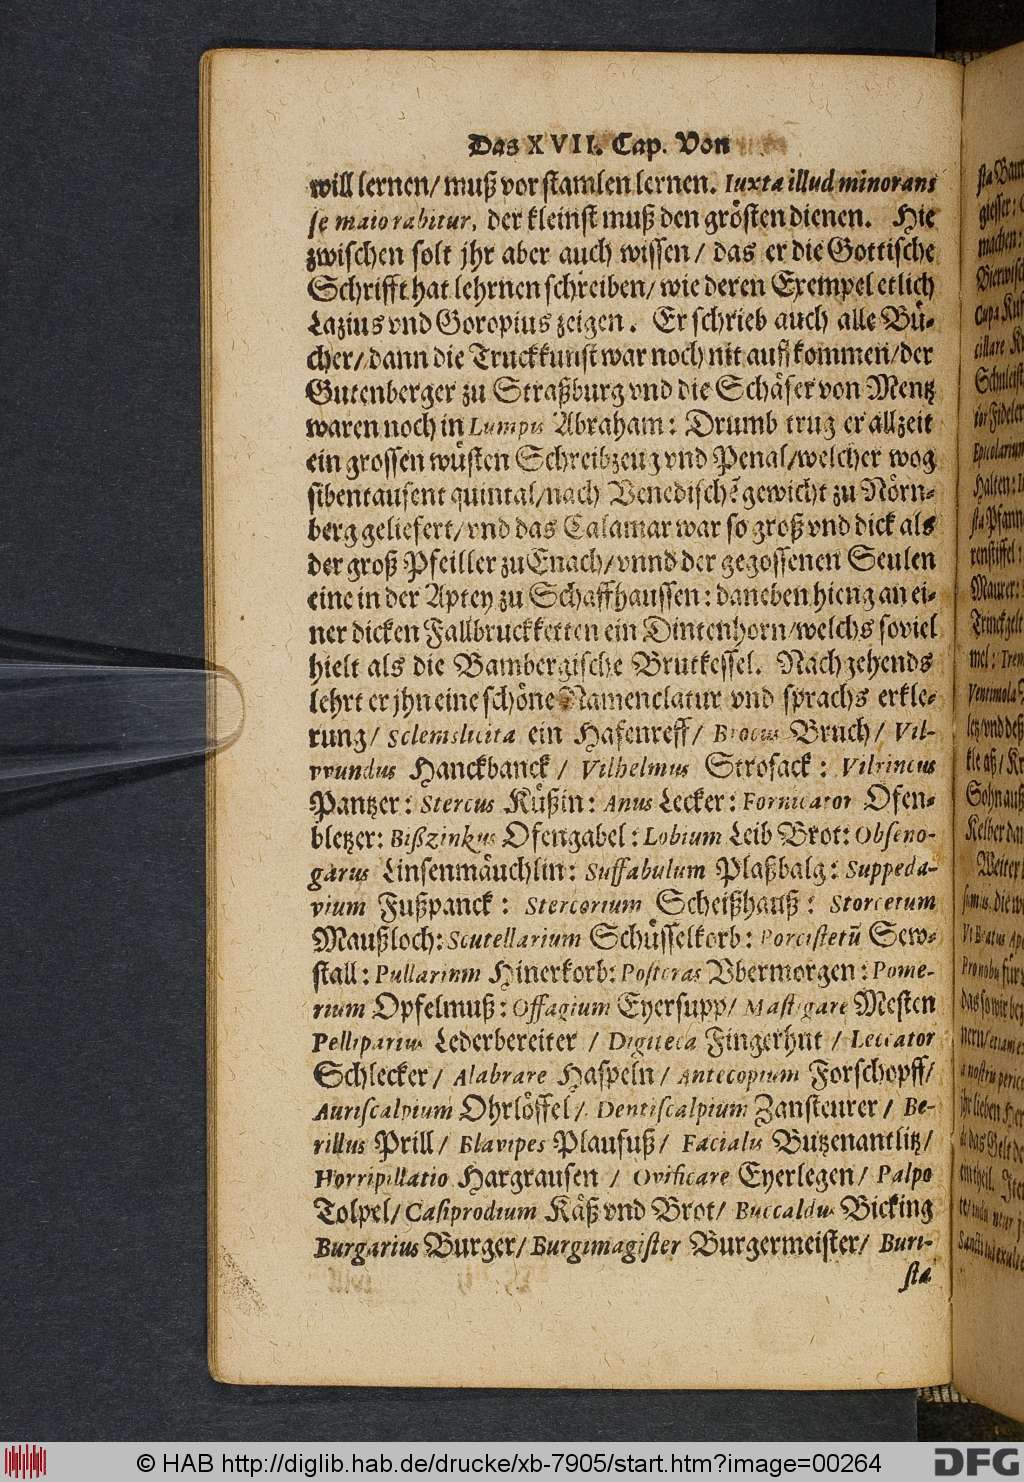 Das XVII. Cap. Von
will lernen/ muß vor stamlen lernen. Iuxta illud minorans
se maiorabitur, der kleinst muß den grösten dienen. Hie
zwischen solt jhr aber auch wissen/ das er die Gottische
Schrifft hat lehrnen schreiben/ wie deren Exempel etlich
Lazius vnd Goropius zeigen. Er schrieb auch alle Bü-
cher/ dann die Truckkunst war noch nit auffkommen/ der
Gutenberger zu Straßburg vnd die Schäfer von Mentz
waren noch in Lumpis Abraham: Drumb trug er allzeit
ein grossen wüsten Schreibzeug vnd Penal/ welcher wog
sibentausent quintal/ nach Venedischẽ gewicht zu Nörn-
berg geliefert/ vnd das Calamar war so groß vnd dick als
der groß Pfeiller zu Enach/ vnnd der gegossenen Seulen
eine in der Aptey zu Schaffhaussen: daneben hieng an ei-
ner dicken Fallbruckketten ein Dintenhorn/ welchs soviel
hielt als die Bambergische Brutkessel. Nachgehends
lehrt er jhn eine schöne Namenclatur vnd sprachs erkle-
rung/ Sclemslicita ein Hafenreff/ Brocus Bruch/ Vil-
vvundus Hanckbanck/ Vilhelmus Strosack: Vilrincus
Pantzer: Stercus Küßin: Anus Lecker: Fornicator Ofen-
bletzer: Bißzinkus Ofengabel: Lobium Leib Brot: Obseno-
garus Linsenmäuchlin: Suffabulum Plaßbalg: Suppeda-
vium Fußpanck: Stercorium Scheißhauß: Storcetum
Maußloch: Scutellarium Schüsselkorb: Porcistetũ Sew-
stall: Pullarium Hinerkorb: Posteras Vbermorgen: Pome-
rium Opfelmuß: Offagium Eyersupp/ Mastigare Mesten
Pelliparius Lederbereiter/ Digiteca Fingerhut/ Leccator
Schlecker/ Alabrare Haspeln/ Antecopium Forschopff/
Auriscalpium Ohrlöffel/ Dentiscalpium Zansteurer/ Be-
rillus Prill/ Blavipes Plaufuß/ Facialis Butzenantlitz/
Horripillatio Hargrausen/ Ovificare Eyerlegen/ Palpo
Tolpel/ Casiprodium Käß vnd Brot/ Buccaldus Bicking
Burgarius Burger/ Burgimagister Burgermeister/ Buri-
sta
© HAB http://diglib.hab.de/drucke/xb-7905/start.htm?image=00264
DFG